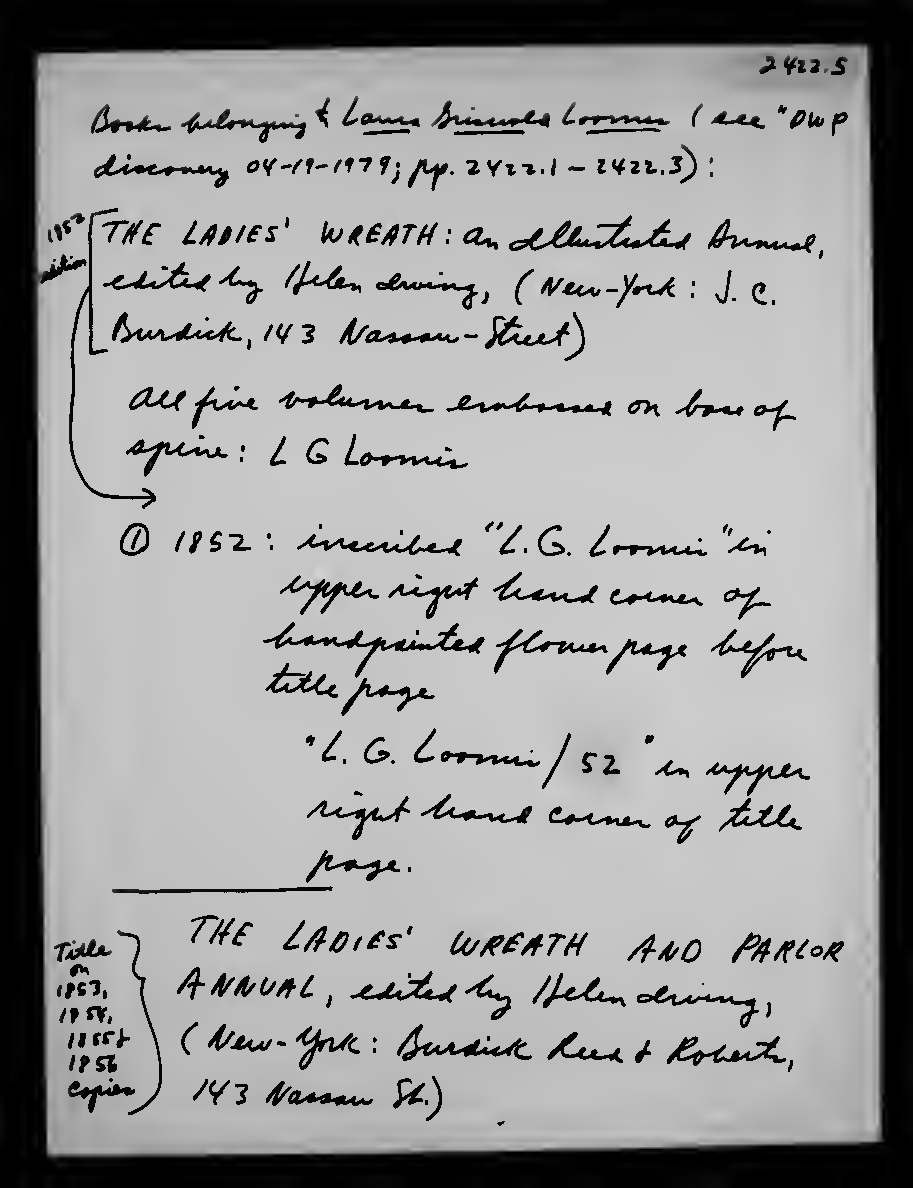 2422.5
Books belonging to Laura Griswold Loomis (see "DWP
discovery 04-19-1979; pp. 2422.1 – 2422.3):
1852
edition
THE LADIES' WREATH: An Illustrated Annual,
edited by Helen Irving, (New-York: J. C.
Burdick, 143 Nassau-Street)
All five volumes embossed on base of
spine: L G Loomis
① 1852: inscribed "L. G. Loomis" in
upper right hand corner of
handpainted flower page before
title page
"L. G. Loomis / 52" in upper
right hand corner of title
page.
THE LADIES' WREATH AND PARLOR
ANNUAL, edited by Helen Irving,
(New-York: Burdick Reed & Roberts,
143 Nassau St.)
Title
on
1853,
1854,
1855 &
1856
Copies